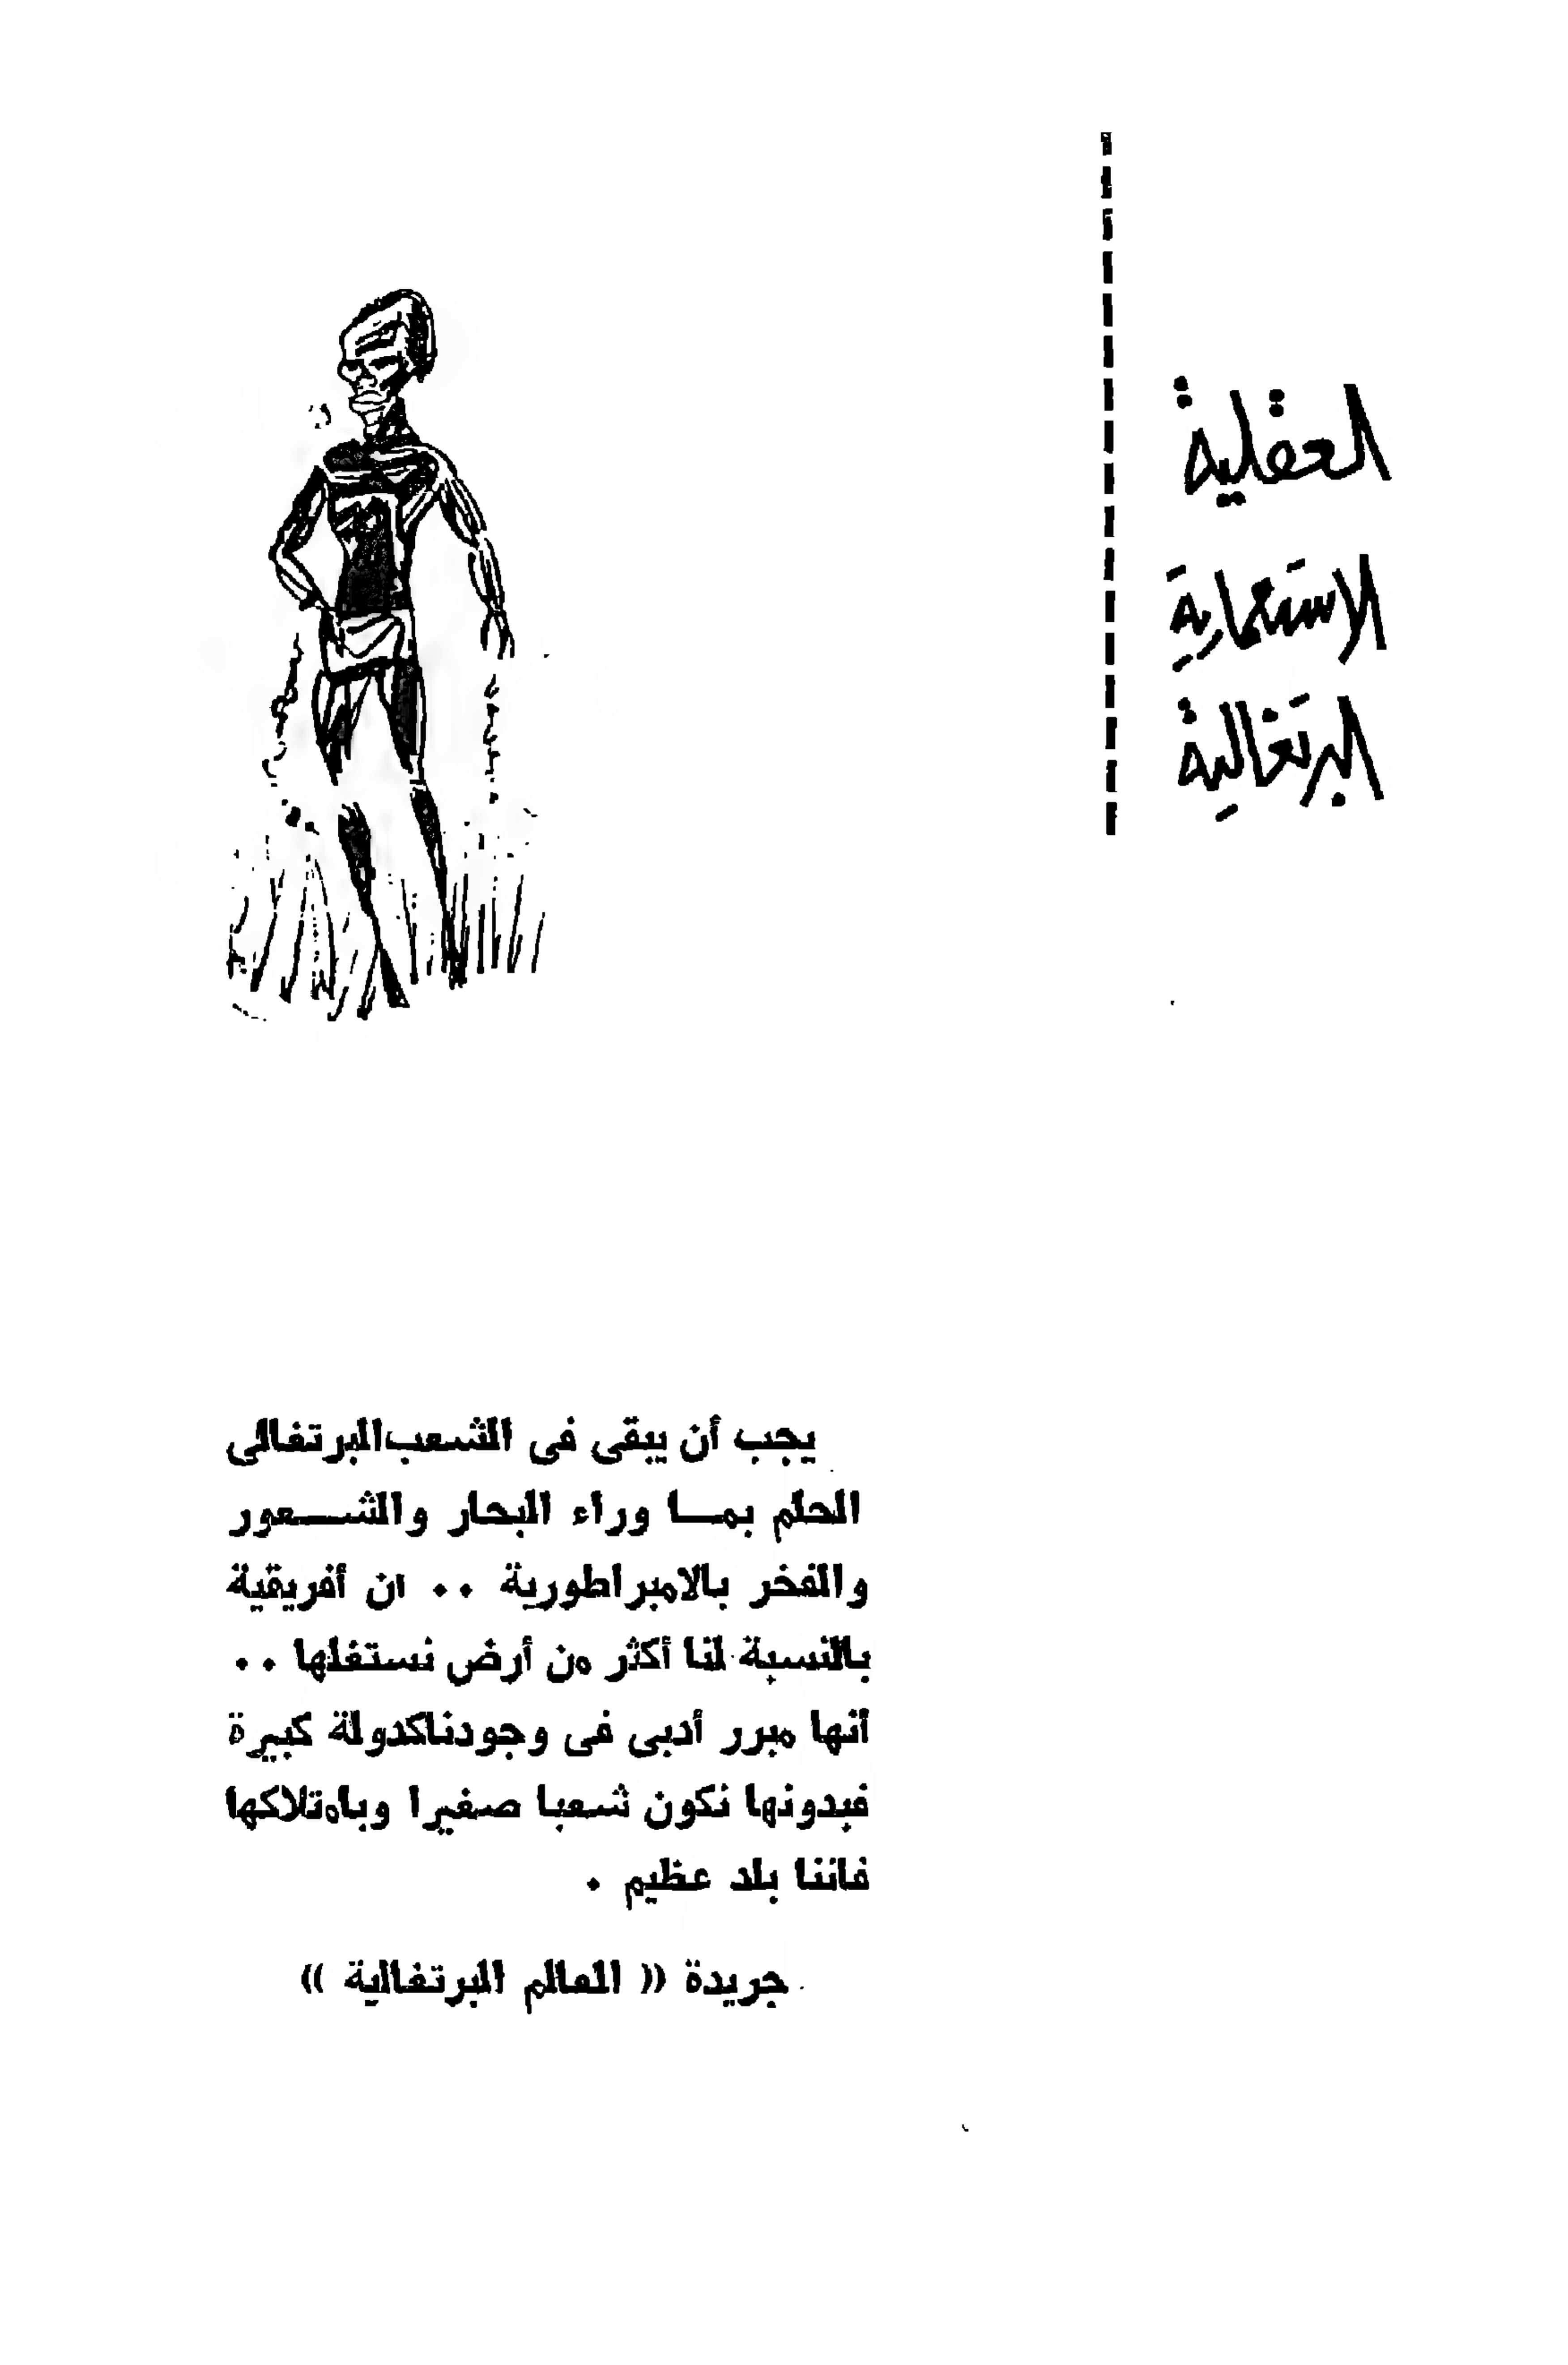 العقلية
الاستعمارية
البرتغالية
يجب أن يبقى فى الشعب البرتغالى
الحلم بمــا وراء البحار والشــــعور
والفخر بالامبراطورية ٠٠ ان أفريقية
بالنسبة لنا أكثر من أرض نستغلها ٠٠
أنها مبرر أدبى فى وجودنا كدولة كبيرة
فبدونها نكون شعبا صغيرا وبامتلاكها
فاننا بلد عظيم ٠
جريدة (( العالم البرتغالية ))